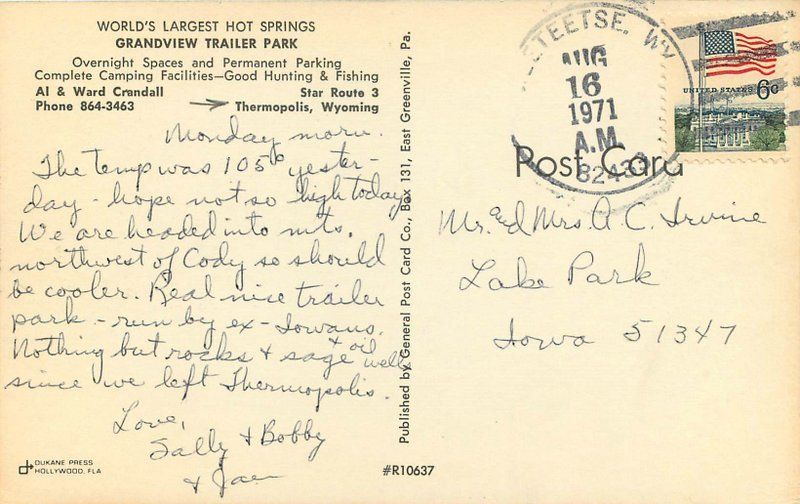 WORLD'S LARGEST HOT SPRINGS
GRANDVIEW TRAILER PARK
Overnight Spaces and Permanent Parking
Complete Camping Facilities—Good Hunting & Fishing
Al & Ward Crandall Star Route 3
Phone 864-3463 Thermopolis, Wyoming
Monday morn.
The temp was 105° yester-
day - hope not so high today
We are headed into mts.
northwest of Cody so should
be cooler. Real nice trailer
park - run by ex-Iowans.
Nothing but rocks + sage + oil wells
since we left Thermopolis.
Love,
Sally + Bobby
+ Jan
DUKANE PRESS
HOLLYWOOD, FLA
Published by General Post Card Co., Box 131, East Greenville, Pa.
#R10637
Post Card
EETEETSE, WY
AUG
16
1971
A.M.
82433
UNITED STATES 6c
Mr. and Mrs. A. C. Irvine
Lake Park
Iowa 51347